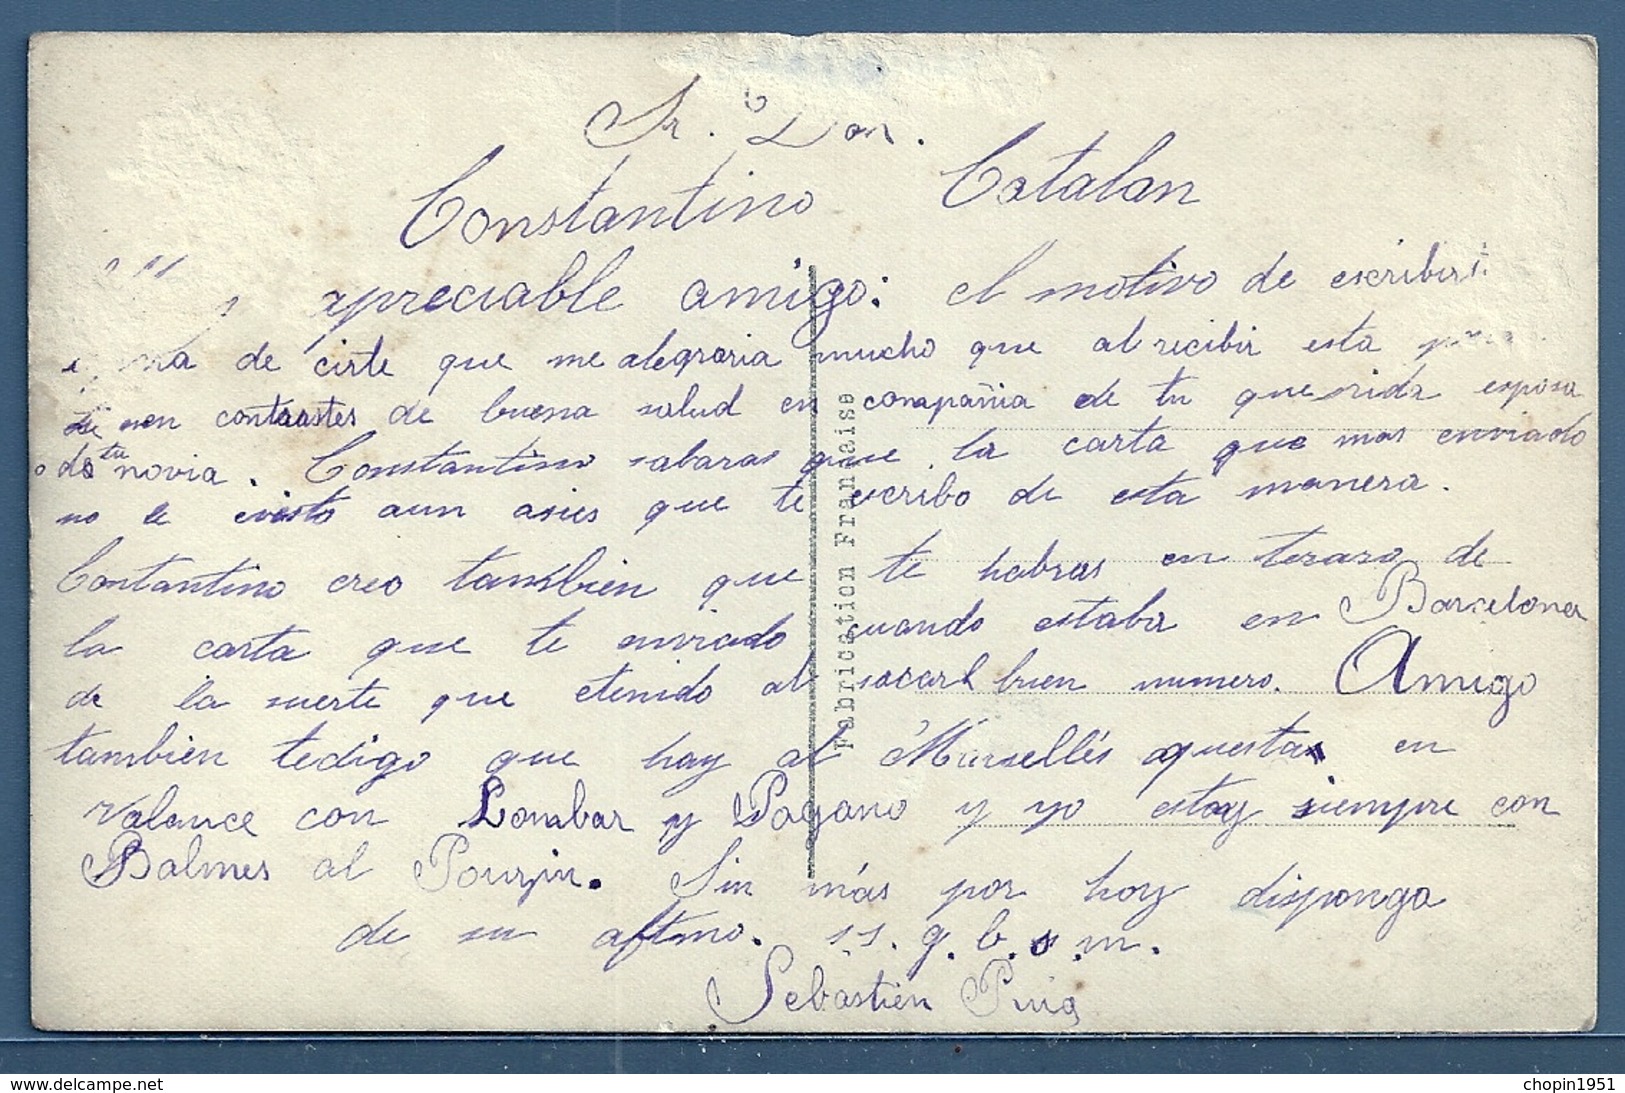 Sr. Don.
Constantino Catalan
apreciable amigo: el motivo de escribirte
de cirte que me alegraria mucho que al recibir esta
contrastes de buena salud en compañia de tu querida esposa
o de tu novia. Constantino sabaras que la carta que mas enviado
no e visto aun asies que te escribo de esta manera.
Contantino creo tambien que te habras en terazo de
la carta que te enviado cuando estaba en Barcelona
de la suerte que etenido al sacarl buen numero. Amigo
tambien tedigo que hay al Marsellés questa en
Valance con Lombar y Pagano y yo estoy siempre con
Balmes al Pouzin. Sin más por hoy disponga
de su aftmo. s.s. q. b. s. m.
Sebastien Puig
Fabrication Française
chopin1951